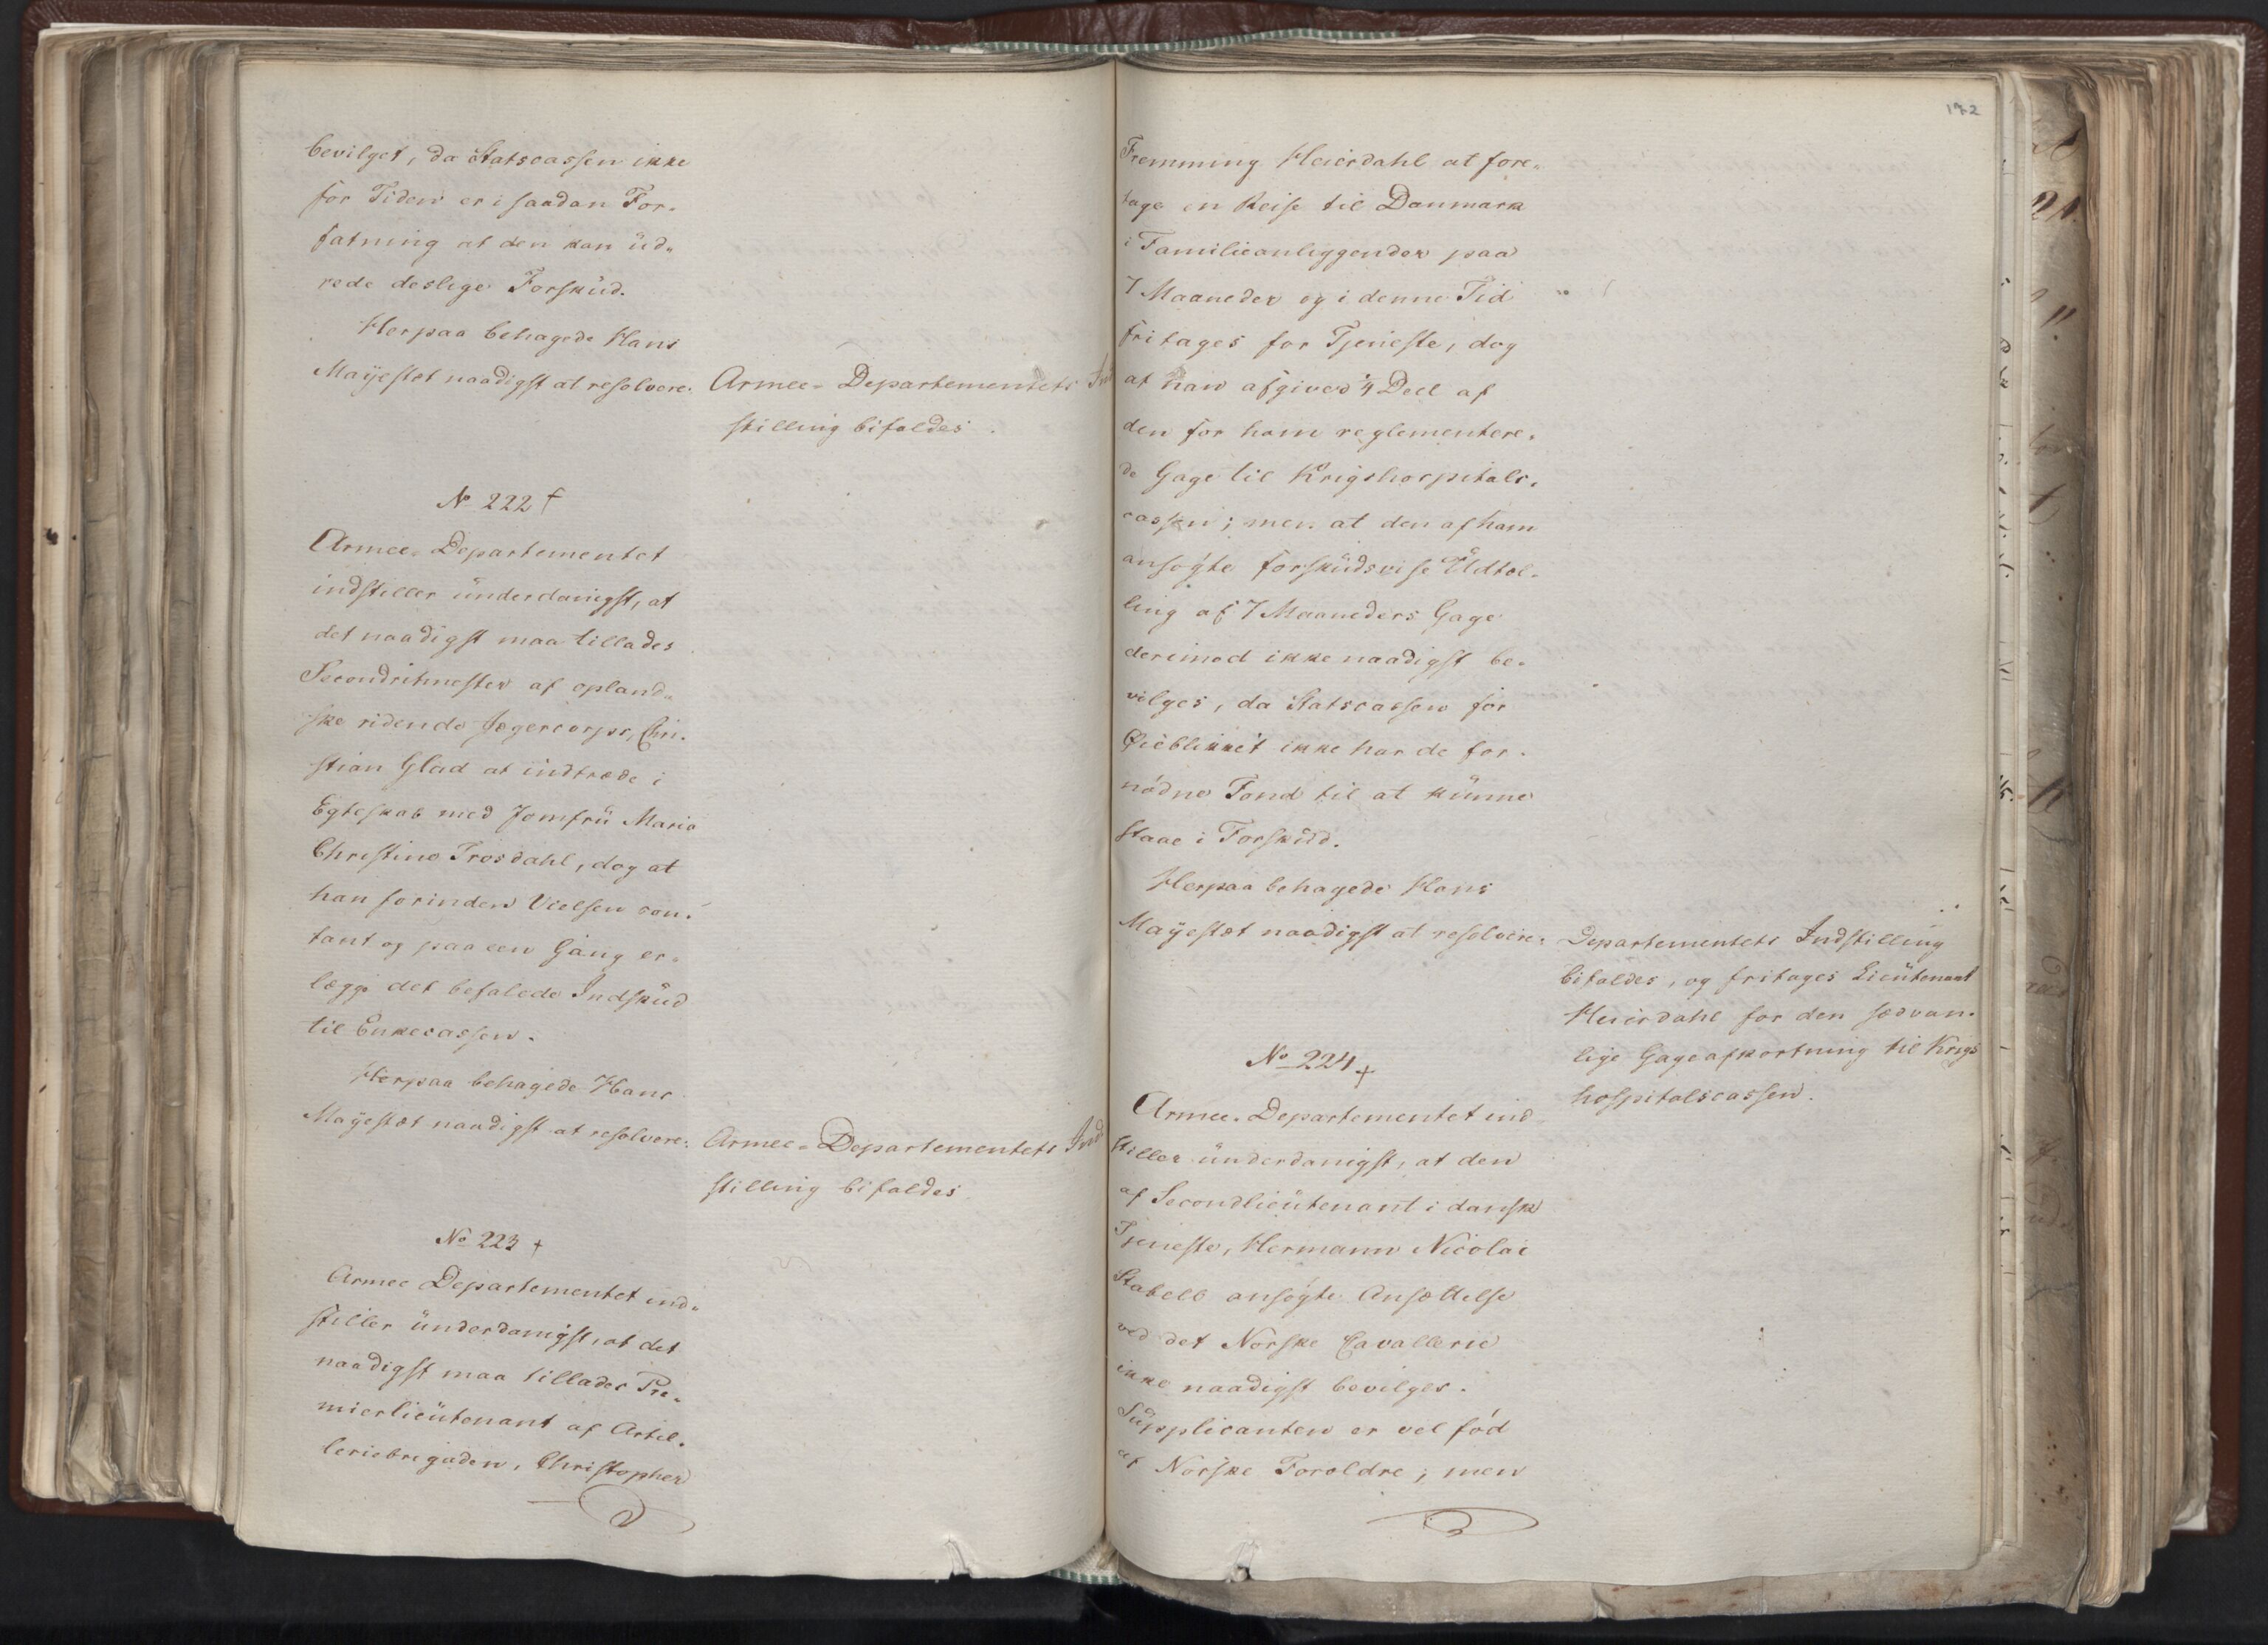 bevilget, da Statscassen ikke
for Tiden er i saadan For-
fatning at den kan üd-
rede deslige Forsküd.
Herpaa behagede Hans
Mayestæt naadigst at resolvere: Armee-Departementets Ind
stilling bifaldes.
No 222 †
Armee-Departementet
indstiller ünderdanigst, at
det naadigst maa tillades
Secondritmester af opland-
ske ridende Jægercorps, Chri-
stian Glad at indtræde i
Egteskab med Jomfrü Maria
Christine Trosdahl, dog at
han forinden Vielsen con-
tant og paa een Gang er-
lægge det befalede Indsküd
til Enkecassen.
Herpaa behagede Hans
Mayestæt naadigst at resolvere: Armee-Departementets Ind
stilling bifaldes
No 223 +
Armee Departementet ind-
stiller ünderdanigst, at det
naadigst maa tillades Pre-
mierlieütenant af Artil-
leriebrigaden, Christopher
172
Fremming Heierdahl at fore-
tage en Reise til Danmark
i Familieanliggender paa
7 Maaneder og i denne Tid
fritages for Tjeneste, dog
at han afgiver 1/4 Deel af
den for ham reglementere-
de Gage til Krigshospitals-
cassen; men at den af ham
ansøgte forsküdsvise Üdtæl-
ling af 7 Maaneders Gage
derimod ikke naadigst be-
vilges, da Statscassen for
Øieblikket ikke har de for-
nødne Fond til at künne
staae i Forsküdd.
Herpaa behagede Hans
Mayestæt naadigst at resolvere: Departementets Indstilling
bifaldes, og fritages Lieütenant
Heierdahl for den sædvan-
lige Gageafkortning til Krigs
hospitalscassen.
No 224 +
Armee-Departementet ind
stiller ünderdanigst, at den
af Secondlieütenant i dansk
Tjeneste, Hermann Nicolai
Stabell ansøgte Ansættelse
ved det Norske Cavallerie
ikke naadigst bevilges.
Süpplicanten er vel fød
af Norske Forældre; men